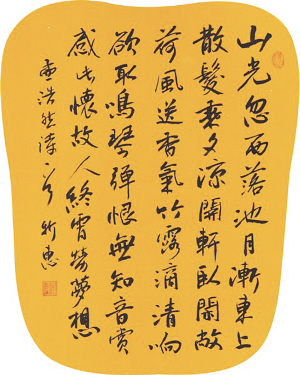 山光忽西落池月漸東上
散髮乘夕涼開軒臥閑敞
荷風送香氣竹露滴清响
欲取鳴琴彈恨無知音賞
感此懷故人終宵勞夢想
孟浩然詩一首 新惠